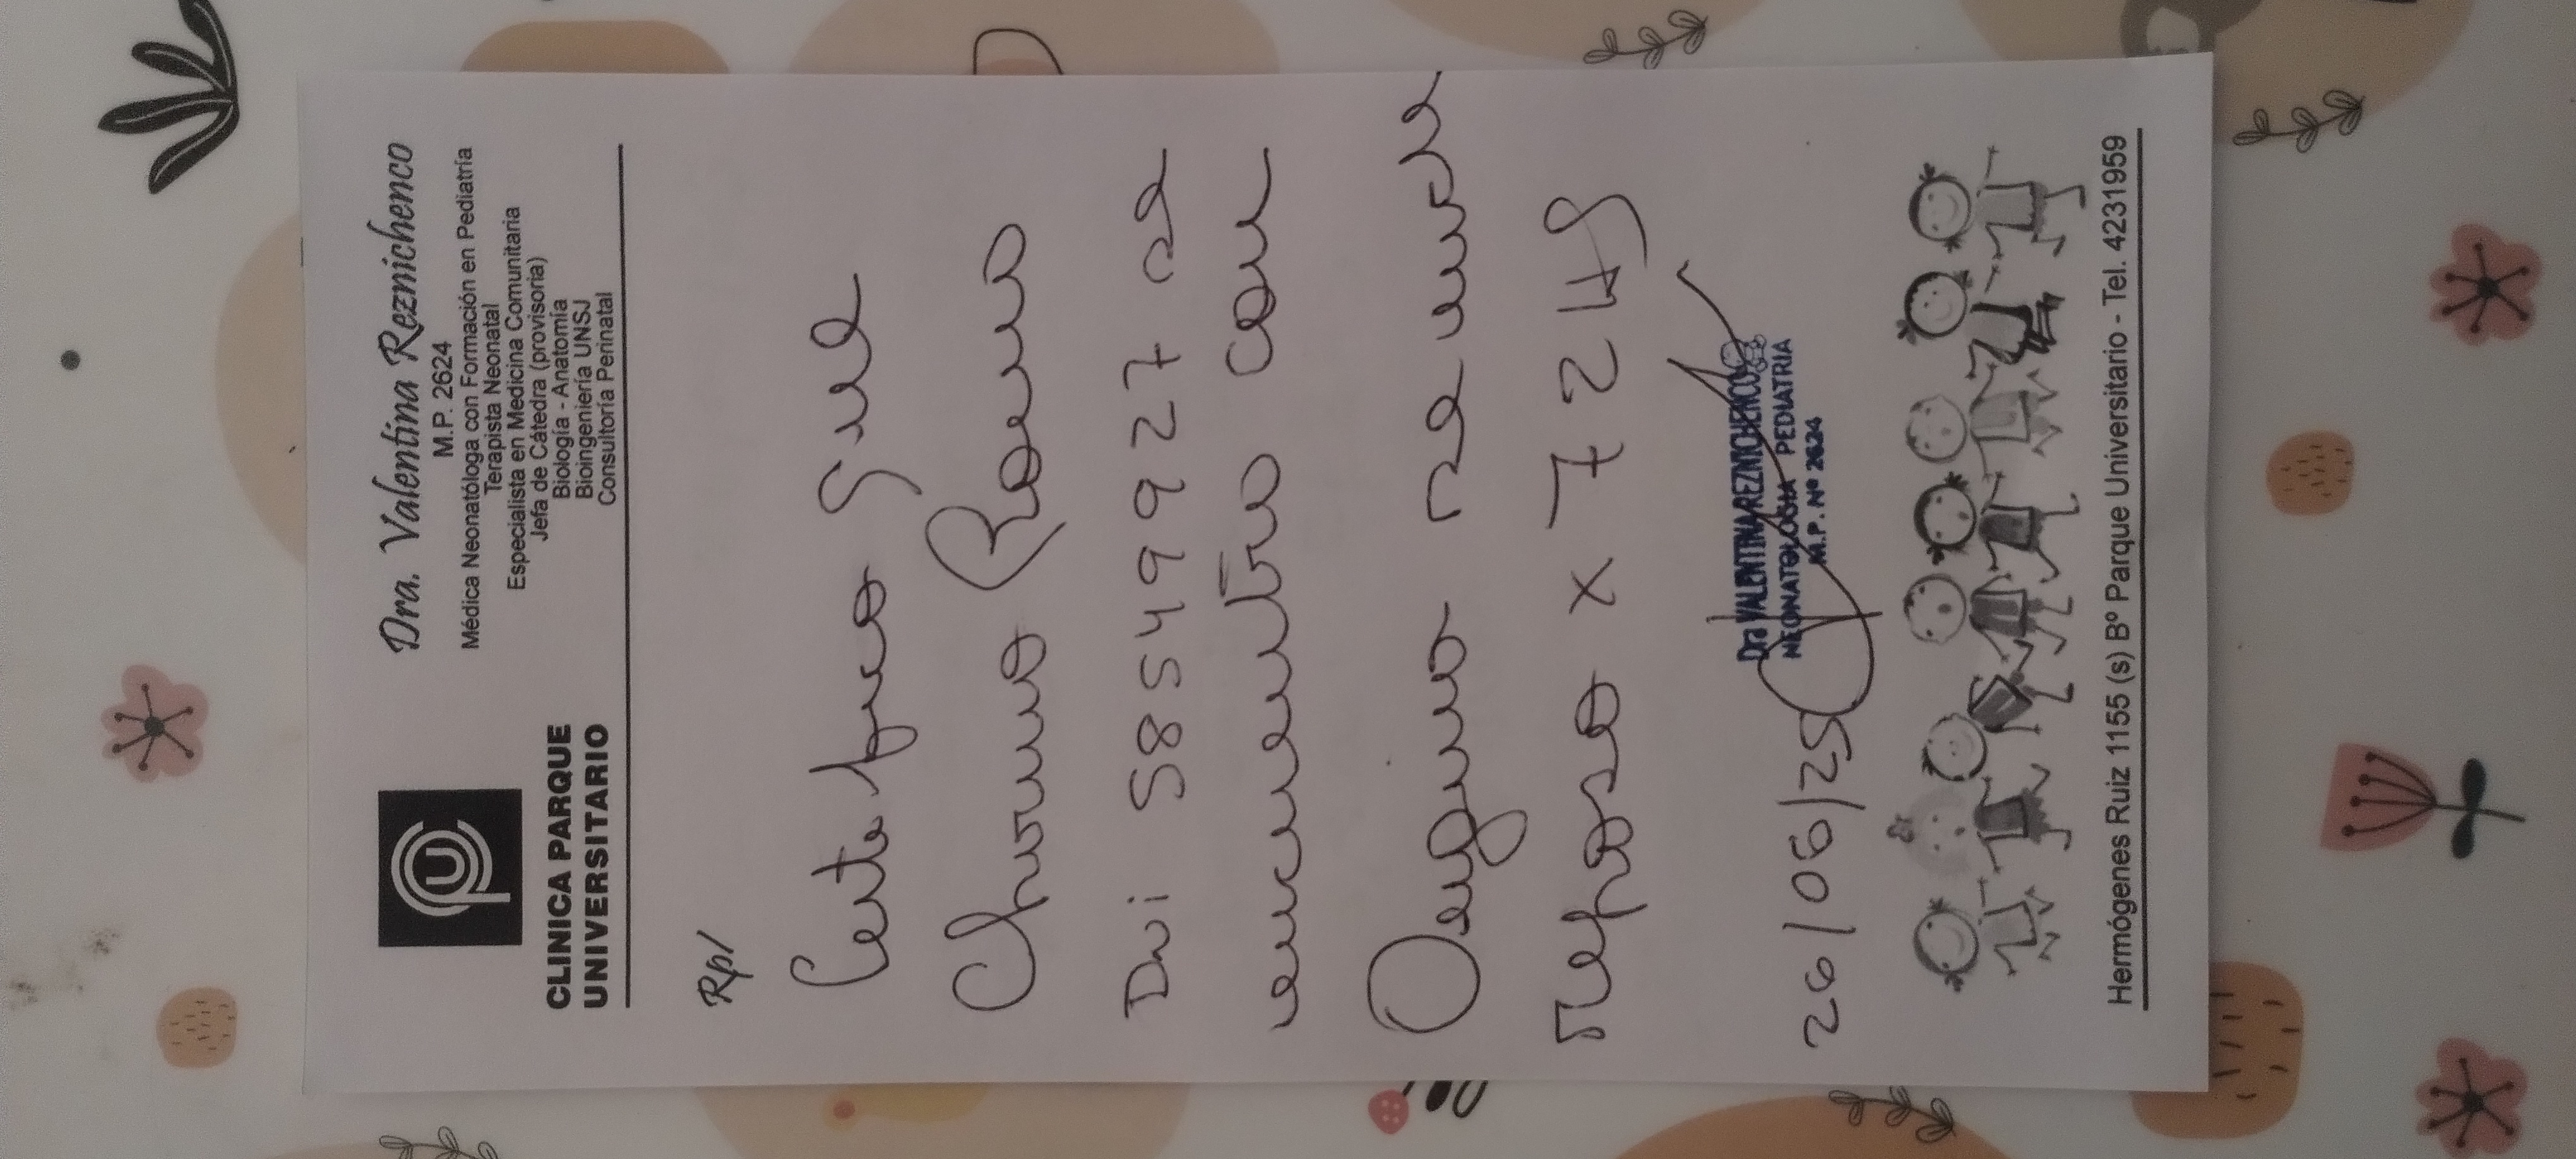 CLINICA PARQUE
UNIVERSITARIO
Dra. Valentina Reznichenco
M.P. 2624
Médica Neonatóloga con Formación en Pediatría
Terapista Neonatal
Especialista en Medicina Comunitaria
Jefa de Cátedra (provisoria)
Biología - Anatomía
Bioingeniería UNSJ
Consultoría Perinatal
Rp/
Certifico que
Romero
DNI 58549927 se
encuentra con
se indica
Reposo x 72 HS
26/06/25
Dra VALENTINA REZNICHENCO
NEONATOLOGIA PEDIATRIA
M.P. Nº 2624
Hermógenes Ruiz 1155 (s) Bº Parque Universitario - Tel. 4231959